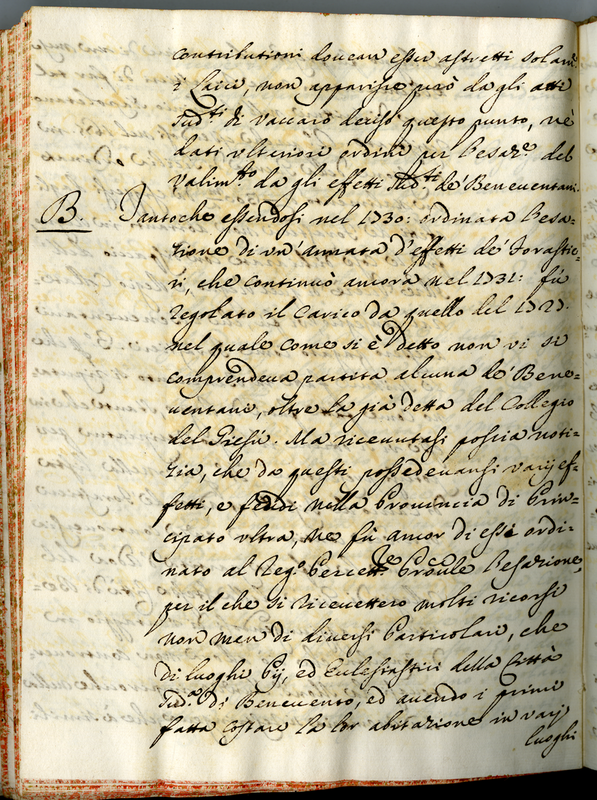 contributioni doveau esser astretti solam.te
i Laici, non apparisce però dagli atti
sud.ti di vaccarò deciso questo punto, nè
dati ulteriori ordini per l'esaz.e del
valim.to dagli effetti sud.ti de' Beneventani.
B. Tantoche essendosi nel 1730: ordinata l'esa=
zione di un'annata d'effetti de' Forastie=
ri, che continuò ancora nel 1731: fù
regolato il Carico da quello del 1727.
nel quale come si è detto non vi si
comprendeva partita alcuna de' Bene=
ventani, oltre la già detta del Collegio
del Giesù. Ma ricevutasi poscia noti=
zia, che da questi possedevansi varij ef=
fetti, e feudi nella Provincia di Prin=
cipato ultra, ne fù ancor di essi ordi=
nato al Reg.o Percett.re Prõule l'esazione,
per il che si ricevettero molti ricorsi
non men di diversi Particolari, che
di luoghi Pij, ed Eclesiastici della Città
sud.a di Benevento, ed avendo i primi
fatta costare la lor abitazione in varij
luoghi